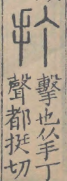 打
擊也从手丁
聲都挺切